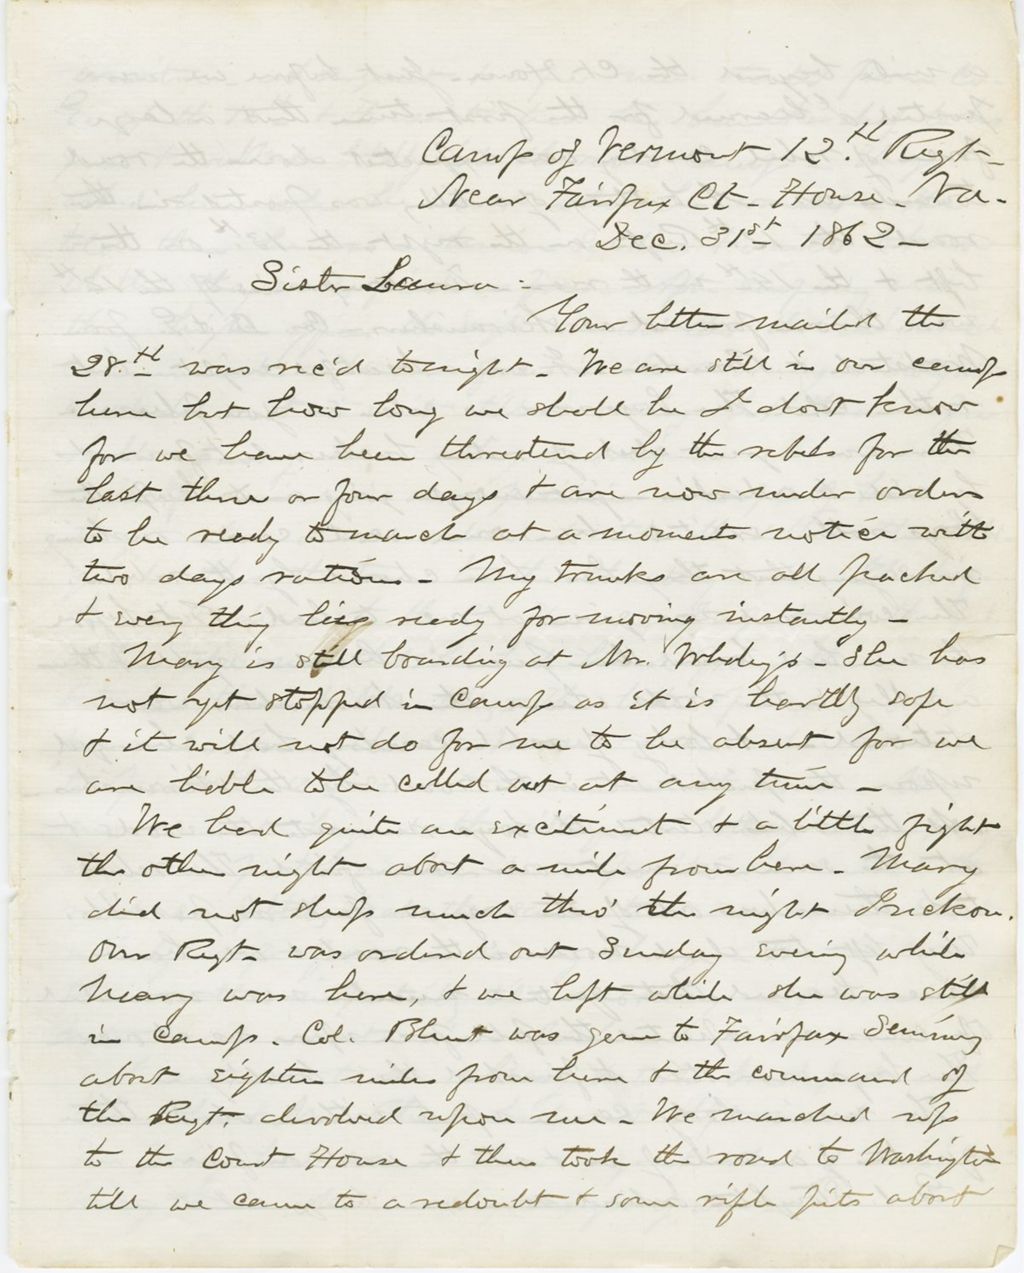 Camp of Vermont 12th Regt-
Near Fairfax Ct- House- Va-
Dec. 31st 1862-
Sister Laura:
Your letter mailed the
28th was rec'd tonight- We are still in our camp
here but how long we shall be I dont know
for we have been threatend by the rebels for the
last three or four days & are now under orders
to be ready to march at a moments notice with
two days rations- My trunks are all packed
& every thing lies ready for moving instantly-
Mary is still boarding at Mr. She has
not yet stopped in camp as it is hardly safe
& it will not do for me to be absent for we
are liable to be called out at any time-
We had quite an excitement & a little fight
the other night about a mile from here- Mary
did not sleep much thro' the night I reckon.
Our Regt- was ordered out Sunday evening while
Mary was here, & we left while she was still
in camp. Col. Blunt was gone to Fairfax Seminary
about eighteen miles from here & the command of
the Regt. devolved upon me- We marched up
to the Court House & then took the road to Washington
till we came to a redoubt & some rifle pits about